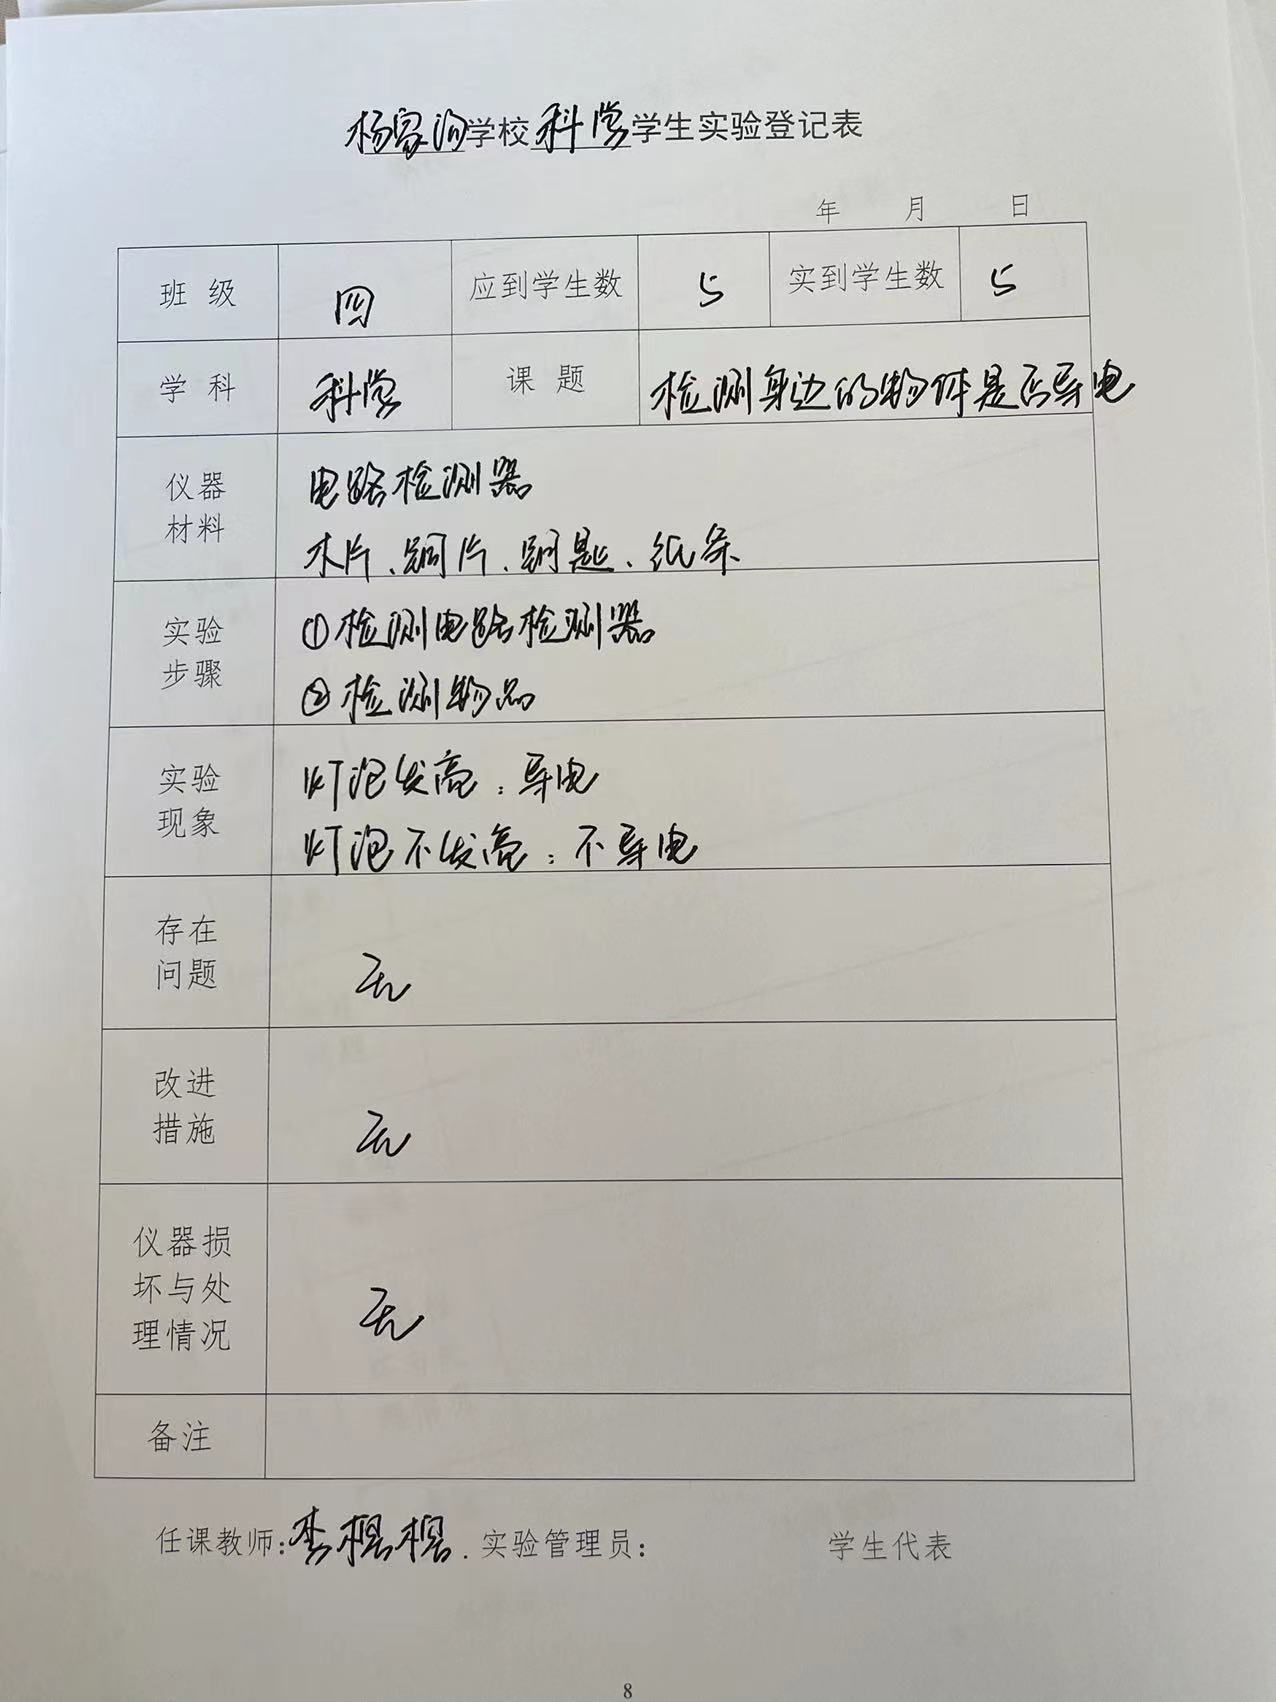 杨家沟学校科学学生实验登记表
年 月 日
班级 四 应到学生数 5 实到学生数 5
学科 科学 课题 检测身边的物体是否导电
仪器
材料
电路检测器
木片、铜片、钥匙、纸条
实验
步骤
①检测电路检测器
②检测物品
实验
现象
灯泡发亮:导电
灯泡不发亮:不导电
存在
问题
无
改进
措施
无
仪器损
坏与处
理情况
无
备注
任课教师:李 实验管理员: 学生代表
8